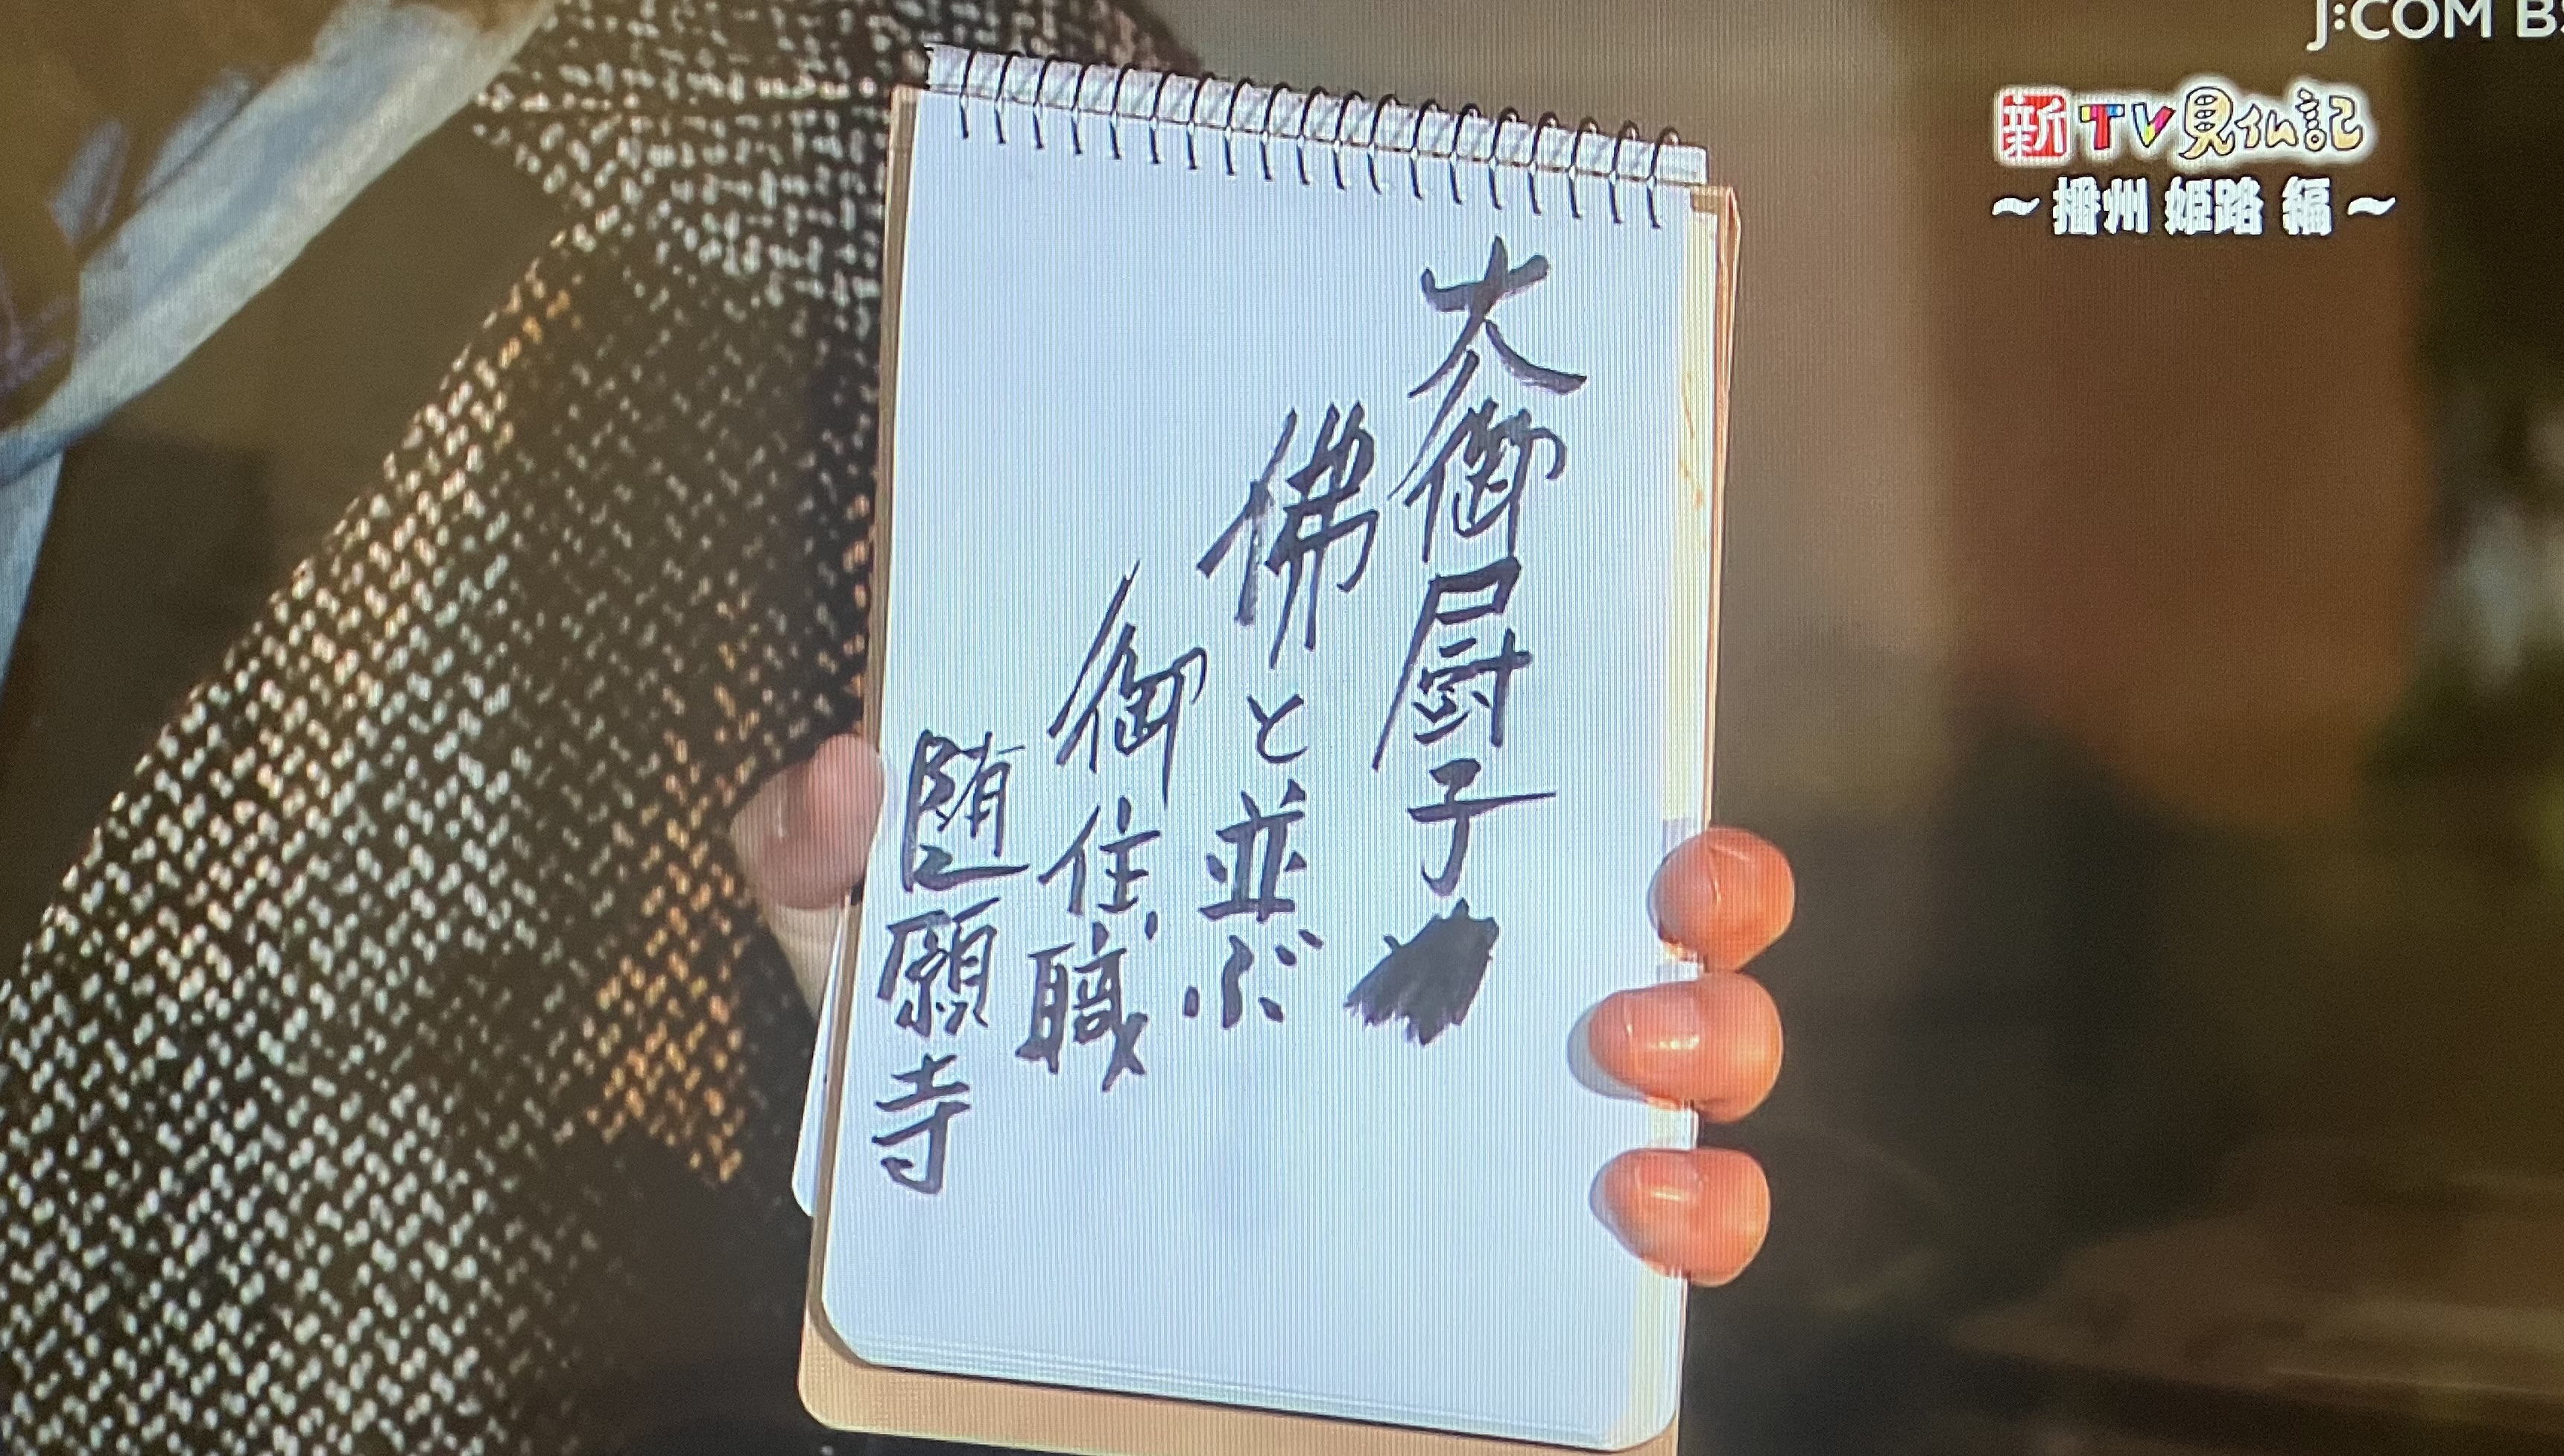 J:COM BS
新TV見仏記
～播州 姫路 編～
大御厨子
佛と並ぶ
御住職
随願寺